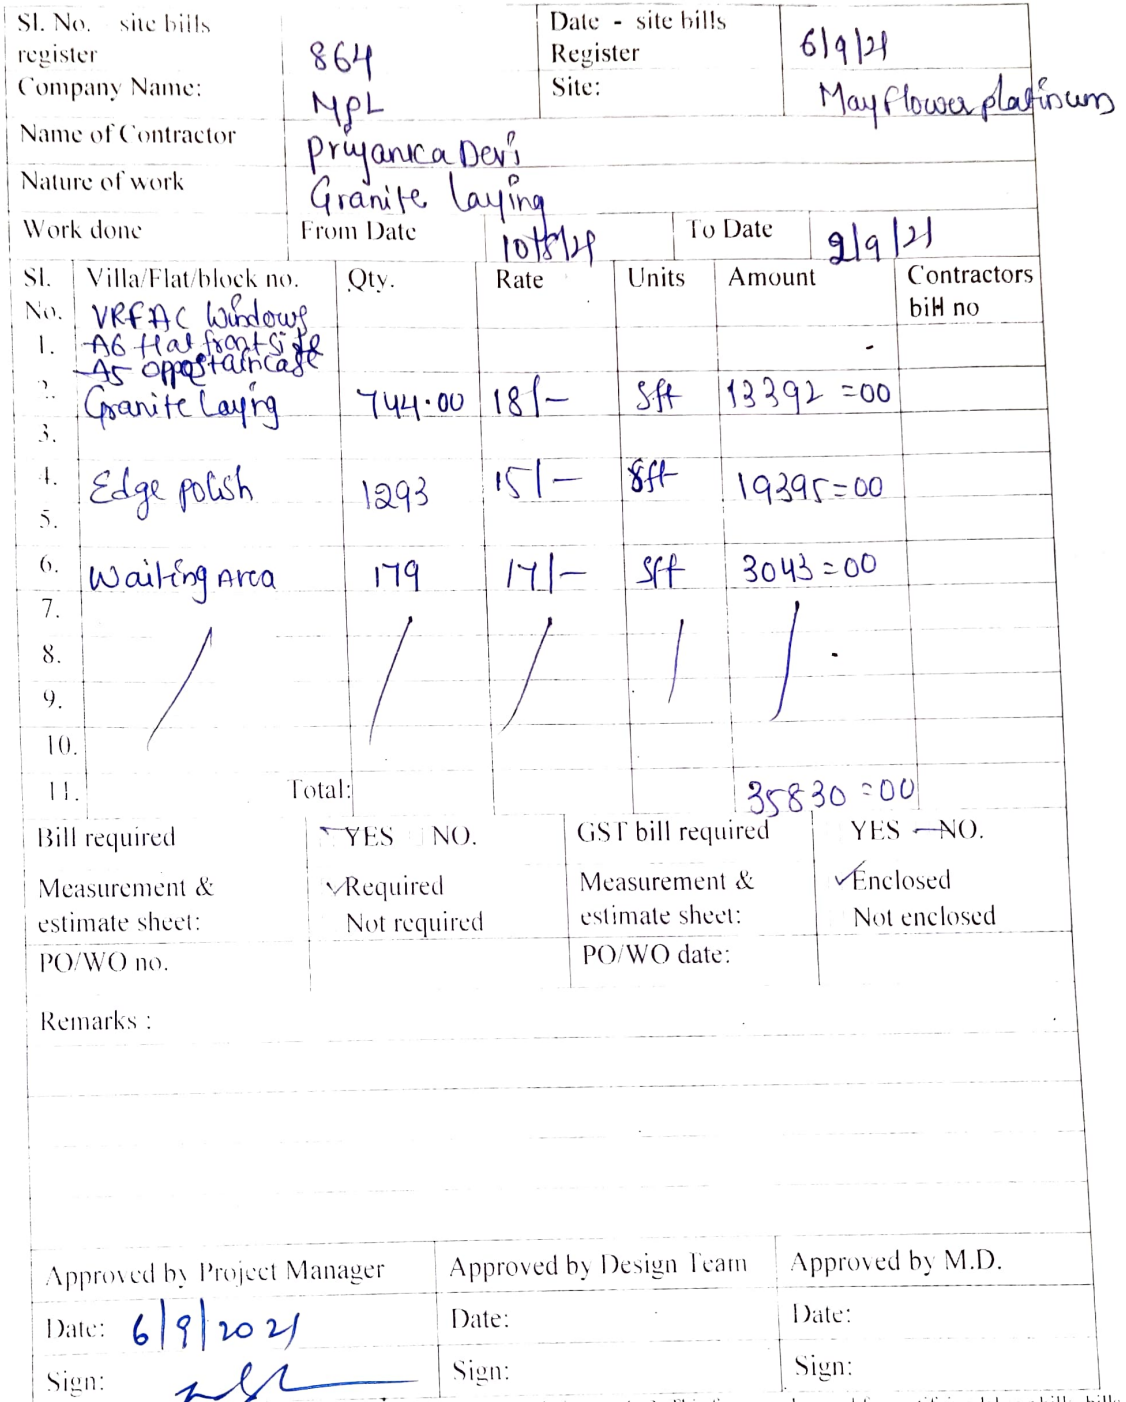 Sl. No. site bills register 864 Date - site bills Register 6/9/21
Company Name: MPL Site: Mayflower platinum
Name of Contractor Priyanka Devi
Nature of work Granite Laying
Work done From Date 10/8/21 To Date 2/9/21
Sl. No. Villa/Flat/block no. Qty. Rate Units Amount Contractors bill no
VRFAC Windows
1. A6 flat front side
A5 opp staircase
2. Granite Laying 744.00 18/- Sft 13392=00
3.
4. Edge polish 1293 15/- Sft 19395=00
5.
6. Waiting Area 179 17/- Sft 3043=00
7.
8.
9.
10.
11. Total: 35830=00
Bill required YES NO. GST bill required YES NO.
Measurement & estimate sheet: Required Not required Measurement & estimate sheet: Enclosed Not enclosed
PO/WO no. PO/WO date:
Remarks :
Approved by Project Manager Approved by Design Team Approved by M.D.
Date: 6/9/2021 Date: Date:
Sign: Sign: Sign: